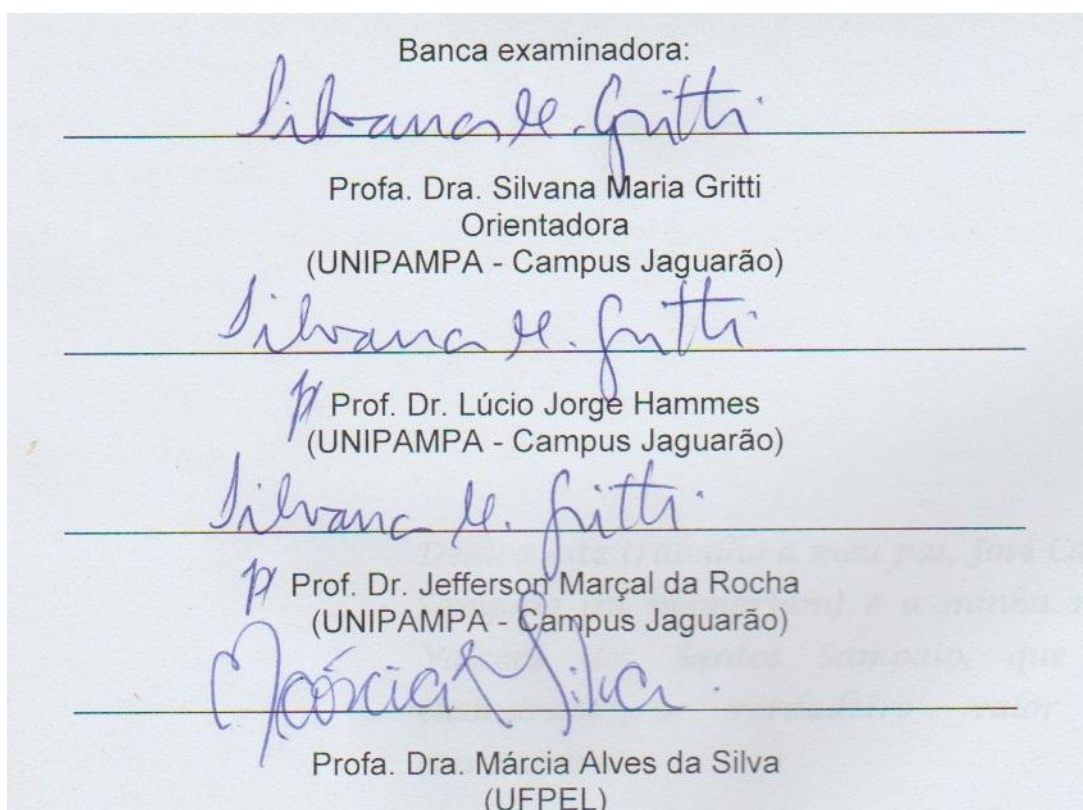 Banca examinadora:
Silvana M. Gritti
Profa. Dra. Silvana Maria Gritti
Orientadora
(UNIPAMPA - Campus Jaguarão)
Silvana M. Gritti
p/ Prof. Dr. Lúcio Jorge Hammes
(UNIPAMPA - Campus Jaguarão)
Silvana M. Gritti
p/ Prof. Dr. Jefferson Marçal da Rocha
(UNIPAMPA - Campus Jaguarão)
Márcia A Silva.
Profa. Dra. Márcia Alves da Silva
(UFPEL)
trabalho a meu pai, José
e a minha
Santos Sampaio, que
verdadeiro valor